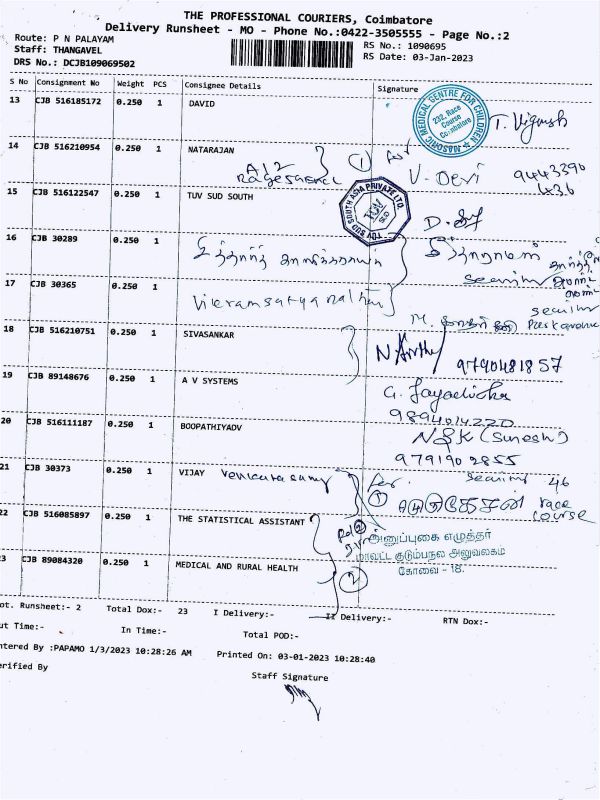 THE PROFESSIONAL COURIERS, Coimbatore
Delivery Runsheet - MO - Phone No.:0422-3505555 - Page No.:2
Route: P N PALAYAM
RS No.: 1090695
Staff: THANGAVEL
RS Date: 03-Jan-2023
DRS No.: DCJB109069502
S No Consignment No Weight PCS Consignee Details Signature
13 CJB 516185172 0.250 1 DAVID
MASONIC MEDICAL CENTRE FOR CHILDREN
232, Race Course Coimbatore
T. Vignesh
14 CJB 516210954 0.250 1 NATARAJAN
A/2
1 for
V. Devi 9443390
436
15 CJB 516122547 0.250 1 TUV SUD SOUTH
TUV SUD SOUTH ASIA PRIVATE LTD.
TUV SUD
16 CJB 30289 0.250 1
security
17 CJB 30365 0.250 1
security
18 CJB 516210751 0.250 1 SIVASANKAR
9790481857
19 CJB 89148676 0.250 1 A V SYSTEMS
G. Jayachithra
9894014220
20 CJB 516111187 0.250 1 BOOPATHIYADV
NSK (Suresh)
9791902855
21 CJB 30373 0.250 1 VIJAY venkatasamy
for security 46
1 race course
22 CJB 516085897 0.250 1 THE STATISTICAL ASSISTANT
அனுப்புகை எழுத்தர்
மாவட்ட குடும்பநல அலுவலகம்
கோவை - 18.
23 CJB 89084320 0.250 1 MEDICAL AND RURAL HEALTH
2
ot. Runsheet:- 2 Total Dox:- 23 I Delivery:- II Delivery:- RTN Dox:-
ut Time:- In Time:- Total POD:-
ntered By :PAPAMO 1/3/2023 10:28:26 AM Printed On: 03-01-2023 10:28:40
erified By
Staff Signature